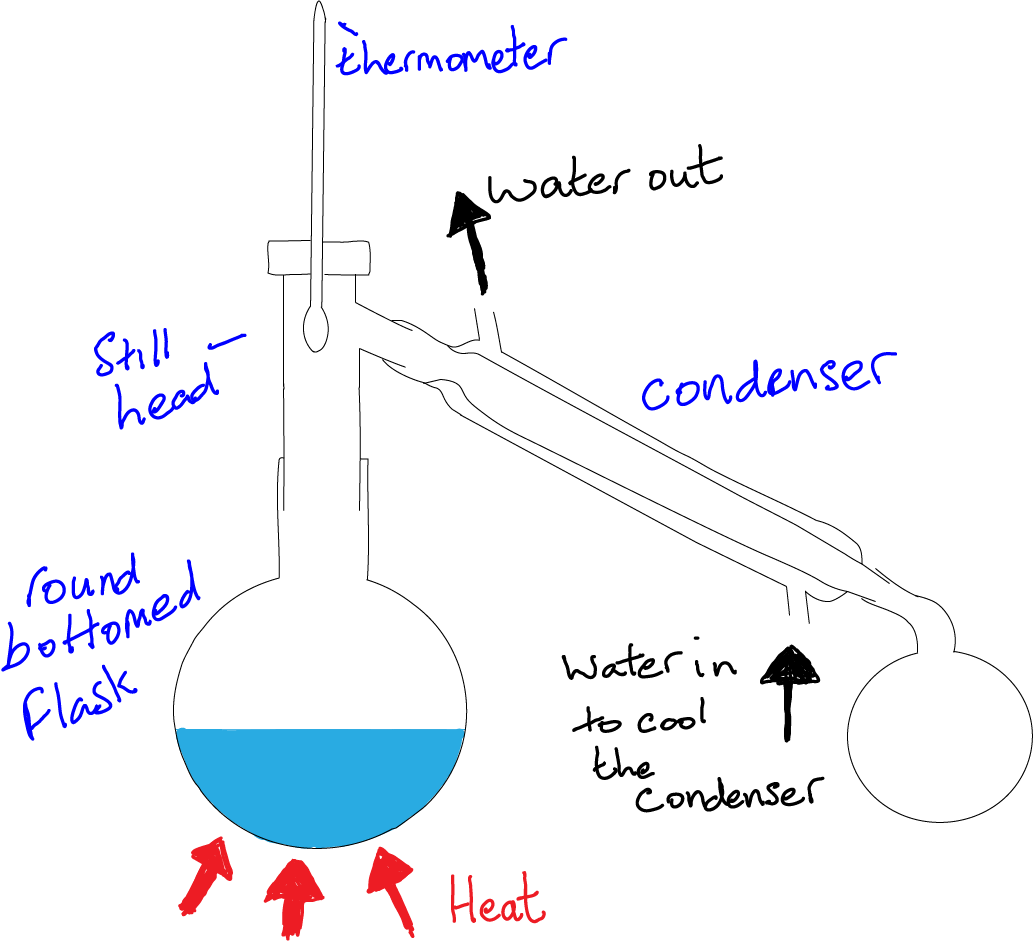 thermometer
Water out
Still
head
condenser
round
bottomed
flask
Water in
to cool
the
condenser
Heat